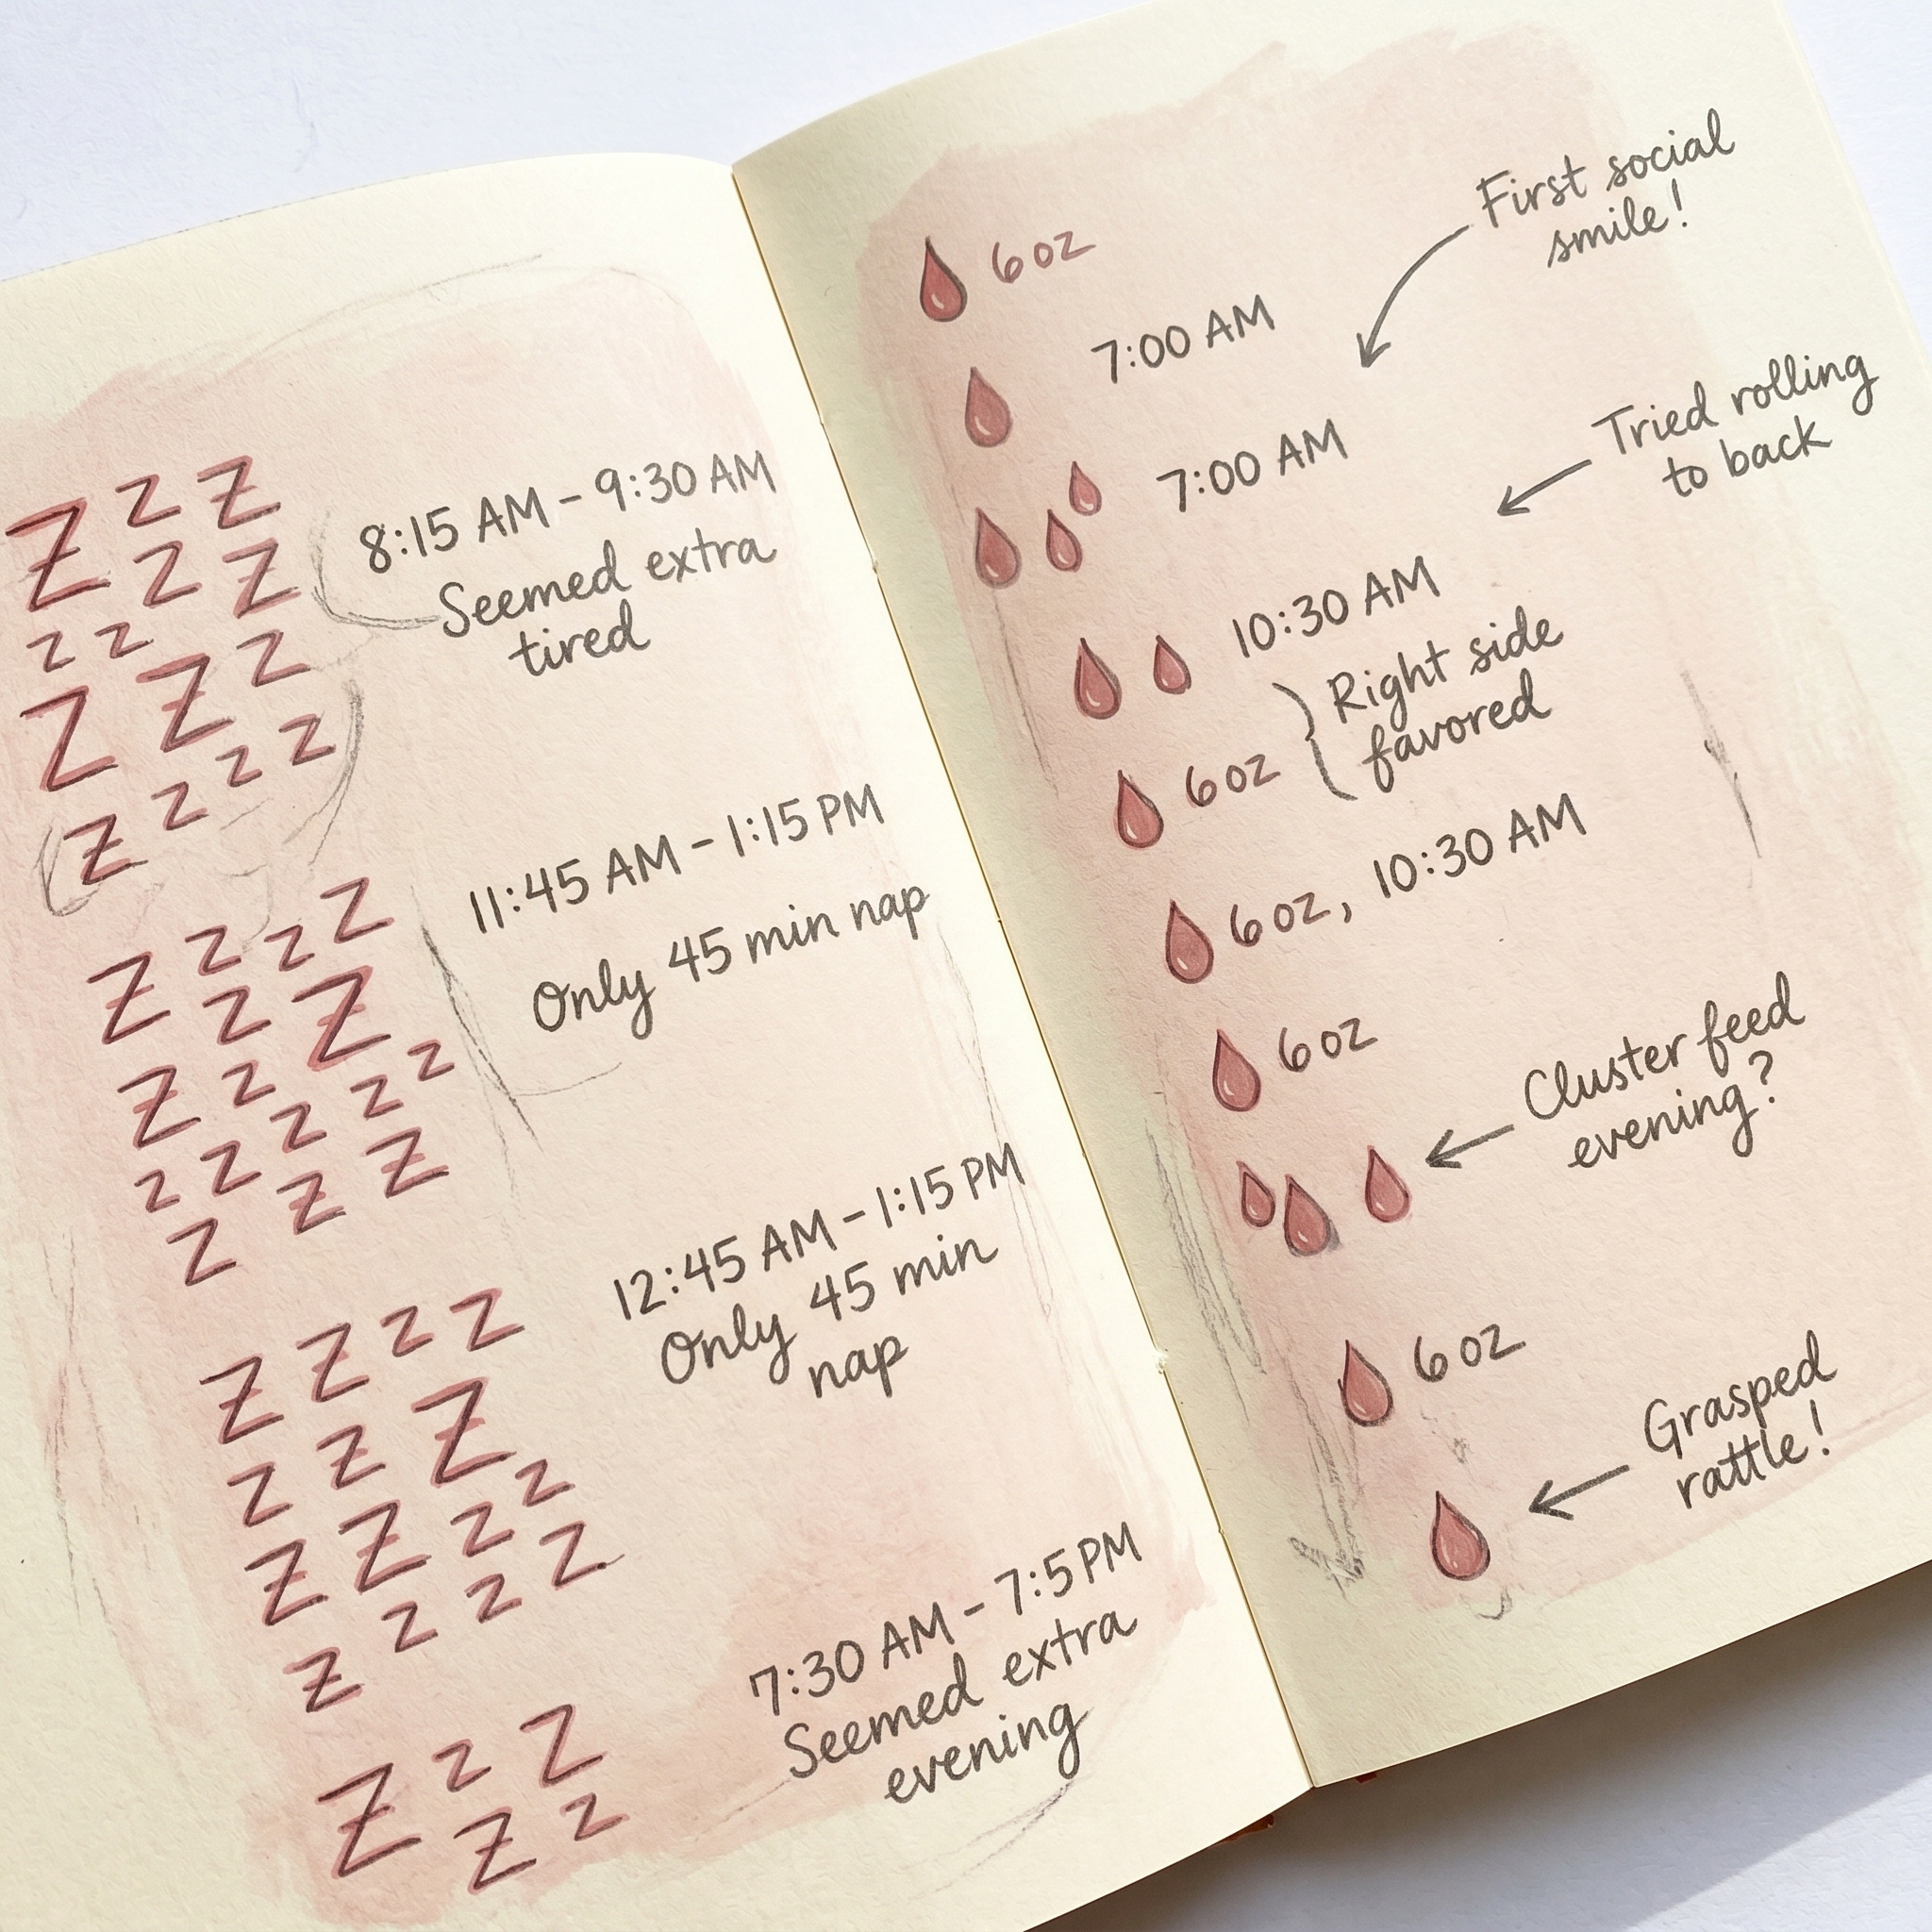 8:15 AM – 9:30 AM
Seemed extra
tired
11:45 AM – 1:15 PM
Only 45 min nap
12:45 AM – 1:15 PM
Only 45 min
nap
7:30 AM – 7:5 PM
Seemed extra
evening
6 oz
First social
smile!
7:00 AM
7:00 AM
Tried rolling
to back
10:30 AM
Right side
favored
6 oz
6 oz, 10:30 AM
6 oz
Cluster feed
evening?
6 oz
Grasped
rattle!